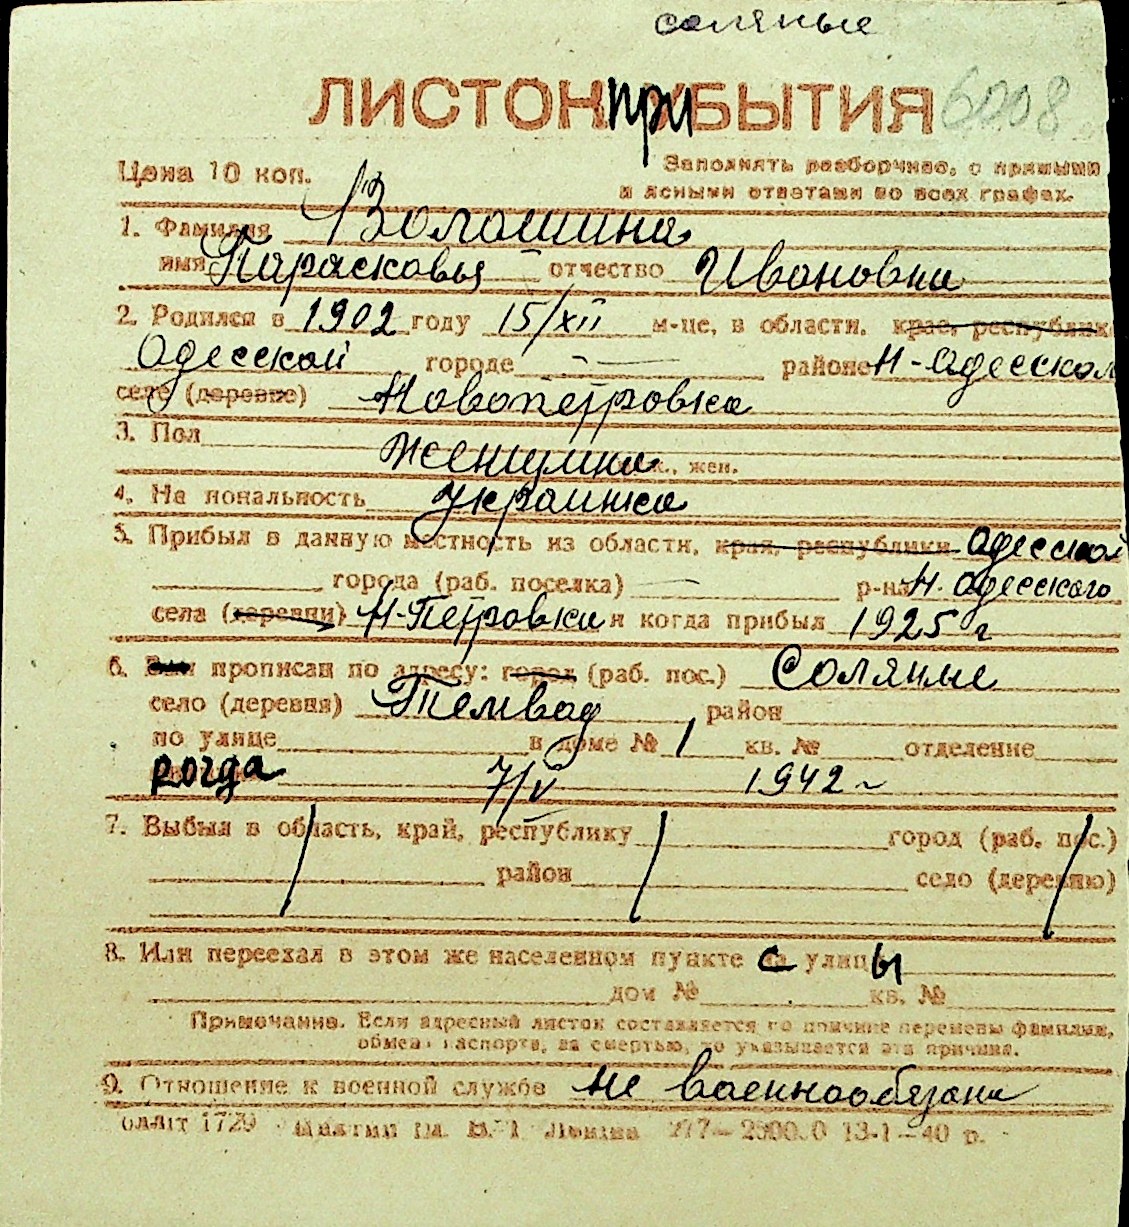 соляные
ЛИСТОК ПРИБЫТИЯ 6008
Цена 10 коп. Заполнять разборчиво, с прямыми
и ясными ответами во всех графах.
1. Фамилия Волошина
имя Парасковья отчество Ивановна
2. Родился в 1902 году 15/XII м-це, в области, края, республик
Одесской городе — районе Н-Одесском
селе (деревне) Новопетровка
3. Пол Женщина жен.
4. Национальность Украинка
5. Прибыл в данную местность из области, края, республики Одесской
города (раб. поселка) — р-на Н. Одесского
села (деревни) Н-Петровки и когда прибыл 1925 г
6. прописан по адресу: город (раб. пос.) Соляные
село (деревня) район
по улице в доме № 1 кв. № отделение
когда 7/V 1942 г
7. Выбыл в область, край, республику город (раб. пос.)
район село (деревню)
8. Или переехал в этом же населенном пункте с улицы
дом № кв. №
Примечание. Если адресный листок составляется по причине перемены фамилии,
обмена паспорта, за смертью, то указывается эта причина.
9. Отношение к военной службе не военнообязана
1729 13-1-40 р.